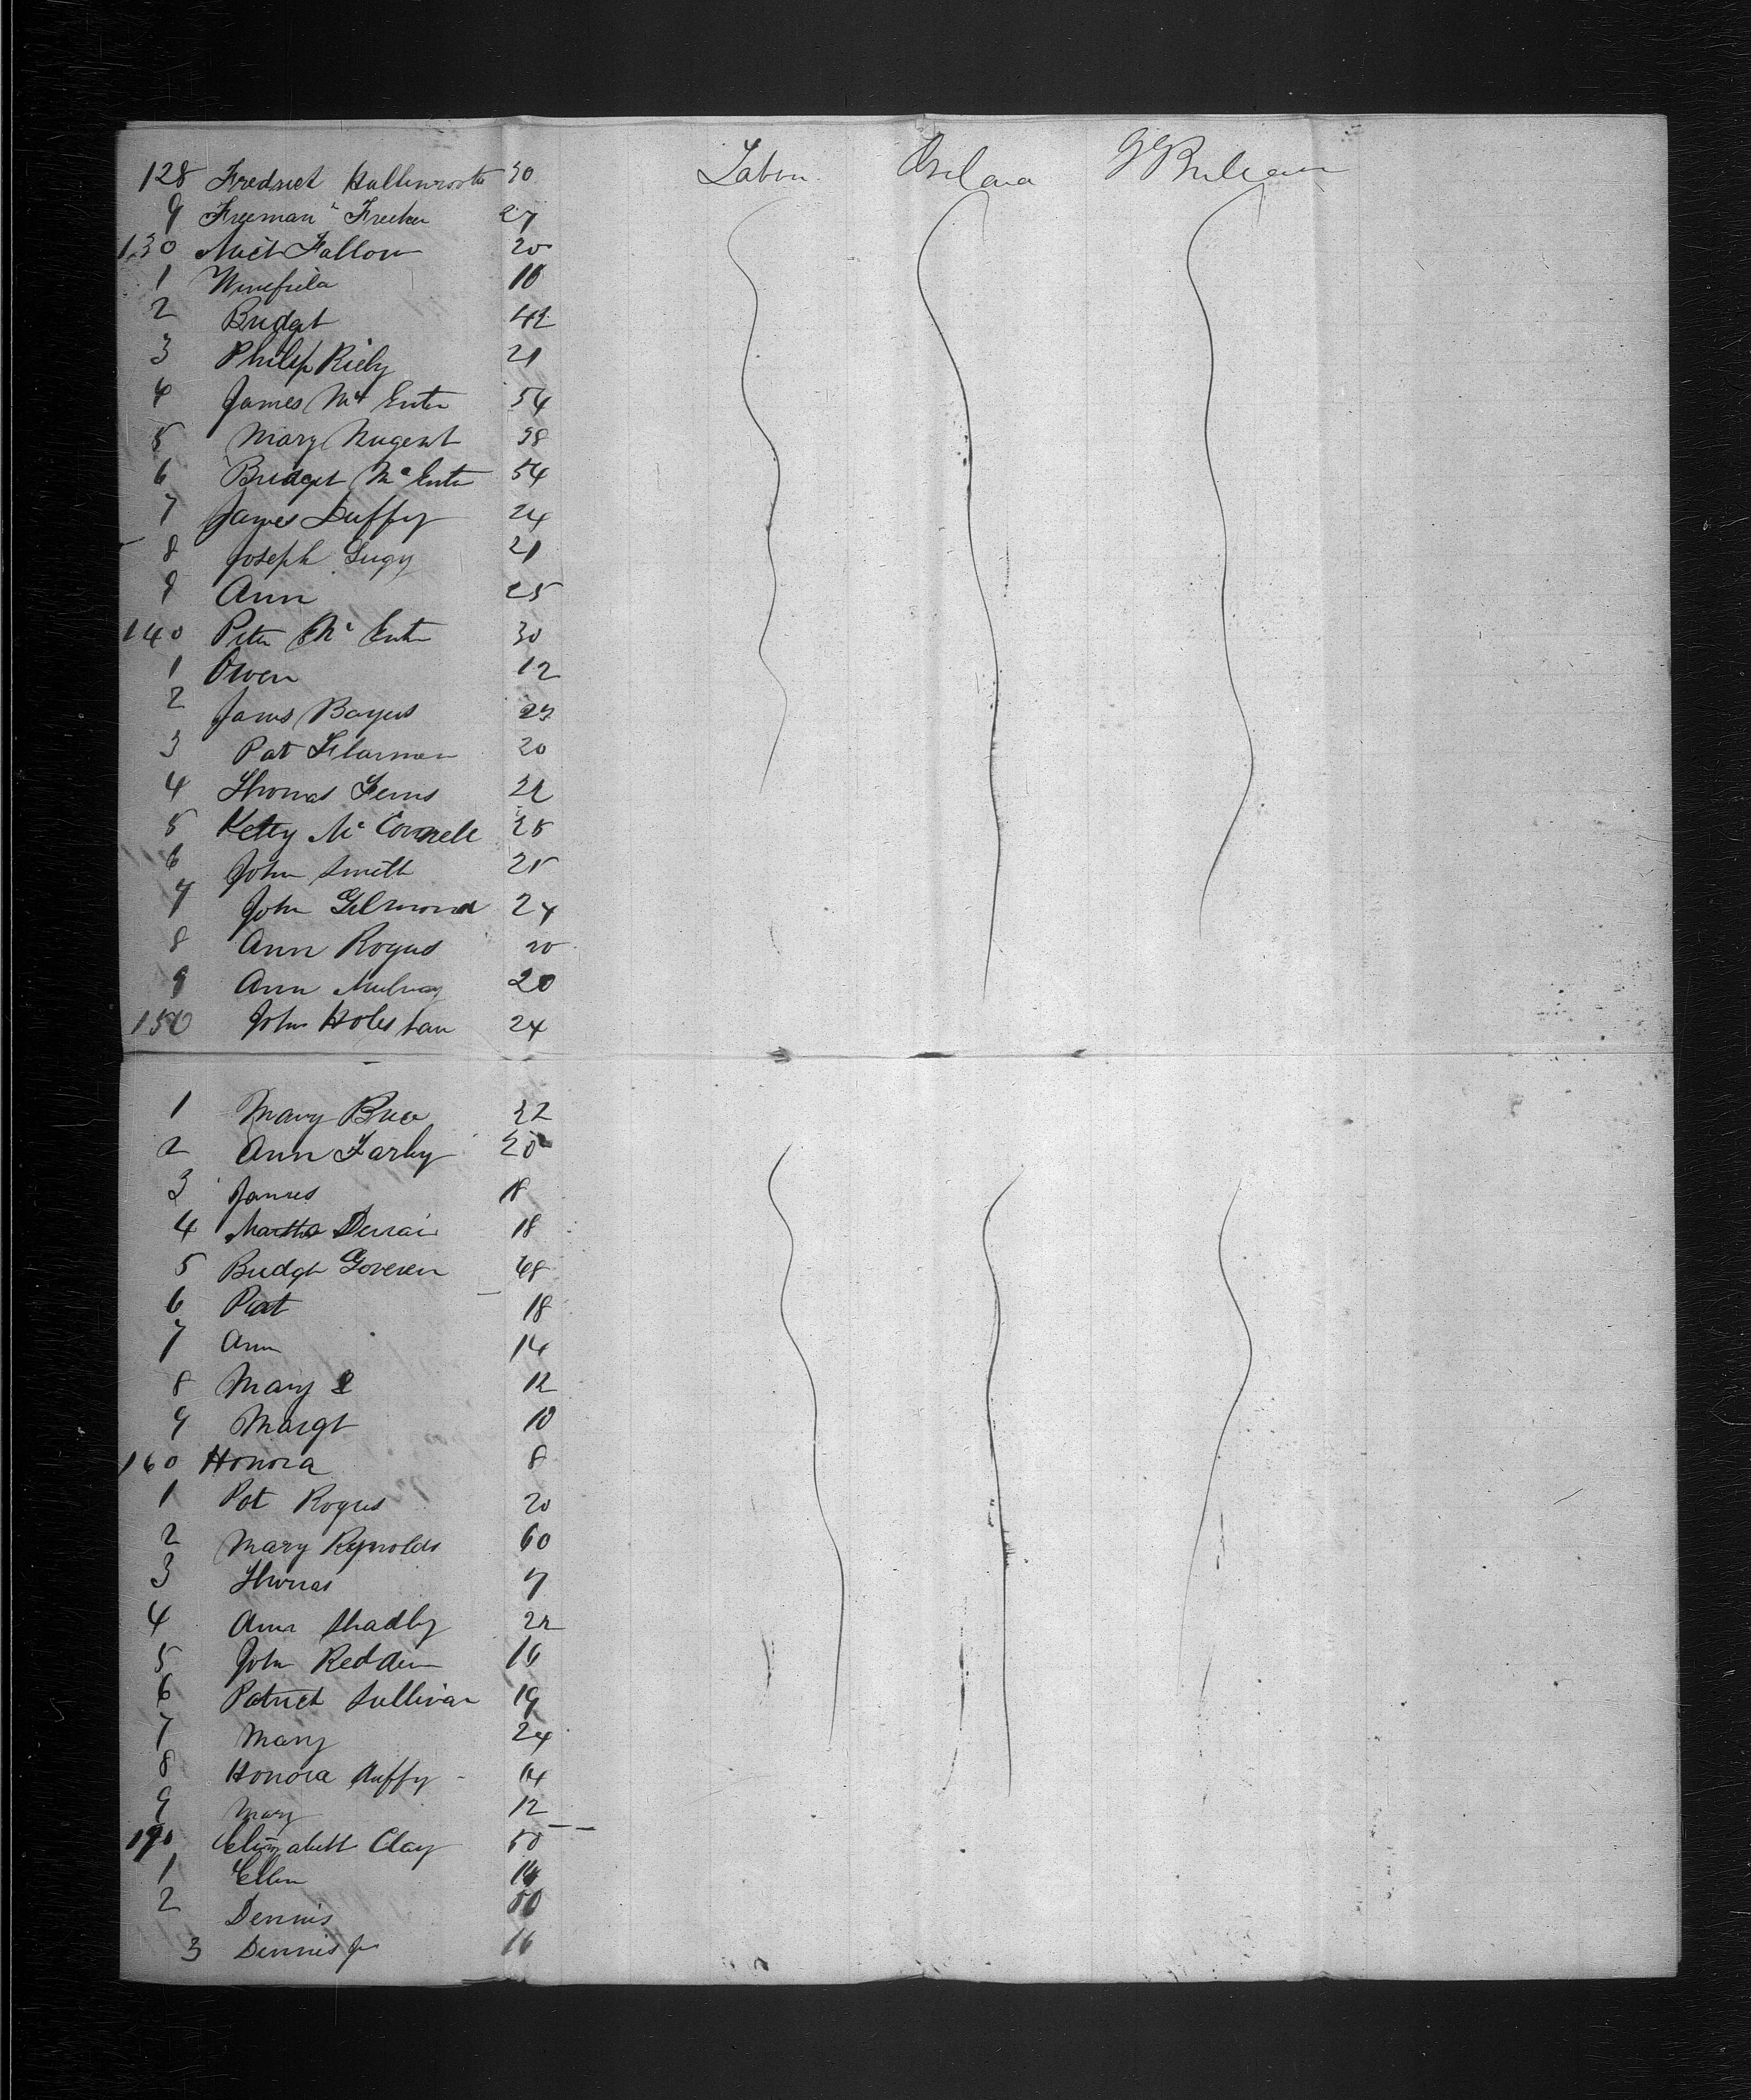 128 Fredrick 30 Labor Ireland G Britain
9 Freeman 27
130 Mict Fallon 20
1 10
2 Bridget 42
3 Philip Riely 21
4 James Mc Enter 54
5 Mary Nugent 38
6 Bridget Mc Enter 54
7 James Duffy 24
8 Joseph 21
9 Ann 25
140 Peter Mc Enter 30
1 Owen 12
2 James
3 Pat 20
4 Thomas 22
5 Ketty Mc Connell 25
6 John Smith 25
7 John Gilmond 24
8 Ann Rogers 20
9 Ann 20
150 John 24
1 Mary 32
2 Ann Farley 20
3 James 18
4 Martha 18
5 Bridgt Goveren 48
6 Pat 18
7 Ann 14
8 Mary 12
9 Margt 10
160 Honora 8
1 Pat Rogers 20
2 Mary Reynolds 60
3 Thomas 7
4 Ann 22
5 John 16
6 Patrick Sullivan 19
7 Mary 24
8 Honora Duffy 14
9 Mary 12
170 Elizabeth Clay 50
1 Ellen
2 Dennis 50
3 Dennis Jr 16